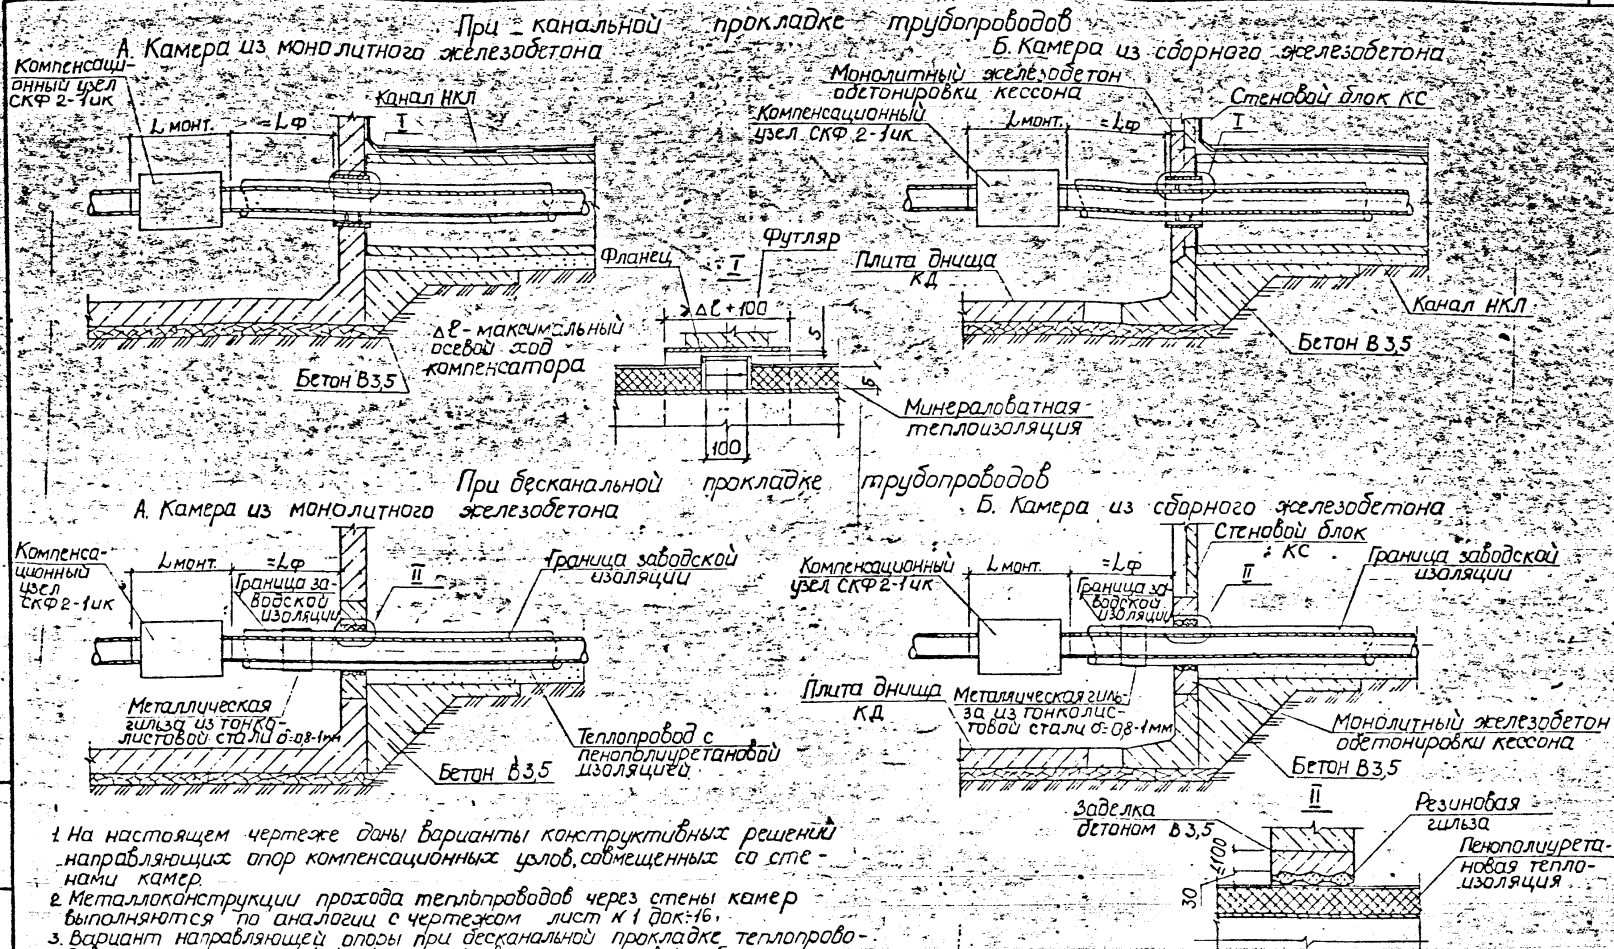 При канальной прокладке трубопроводов
А. Камера из монолитного железобетона
Б. Камера из сборного железобетона
Компенсаци-
онный узел
СКФ 2-1ик
Канал НКЛ
I
Lмонт.
=Lф
Монолитный железобетон
обетонировки кессона
Компенсационный
узел СКФ 2-1ик
Стеновой блок КС
I
Lмонт.
=Lф
Фланец
I
Футляр
Δℓ+100
5
Δℓ - максимальный
осевой ход
компенсатора
Бетон В3,5
Плита днища
КД
Канал НКЛ
Бетон В3,5
Минераловатная
теплоизоляция
100
При бесканальной прокладке трубопроводов
А. Камера из монолитного железобетона
Б. Камера из сборного железобетона
Компенса-
ционный
узел
СКФ 2-1ик
Lмонт.
=Lф
Граница за-
водской
изоляции
II
Граница заводской
изоляции
Металлическая
гильза из тонко-
листовой стали б=0,8-1мм
Теплопровод с
пенополиуретановой
изоляцией
Бетон В3,5
Компенсационный
узел СКФ 2-1ик
Lмонт.
=Lф
Граница за-
водской
изоляции
Стеновой блок
КС
II
Граница заводской
изоляции
Плита днища
КД
Металлическая гиль-
за из тонколис-
товой стали б=0,8-1мм
Монолитный железобетон
обетонировки кессона
Бетон В3,5
II
Заделка
бетоном В3,5
Резиновая
гильза
Пенополиурета-
новая тепло-
изоляция
30
1 На настоящем чертеже даны варианты конструктивных решений
направляющих опор компенсационных узлов, совмещенных со сте-
нами камер.
2 Металлоконструкции прохода теплопроводов через стены камер
выполняются по аналогии с чертежом лист №1 док.-16.
3. Вариант направляющей опоры при бесканальной прокладке теплопрово-